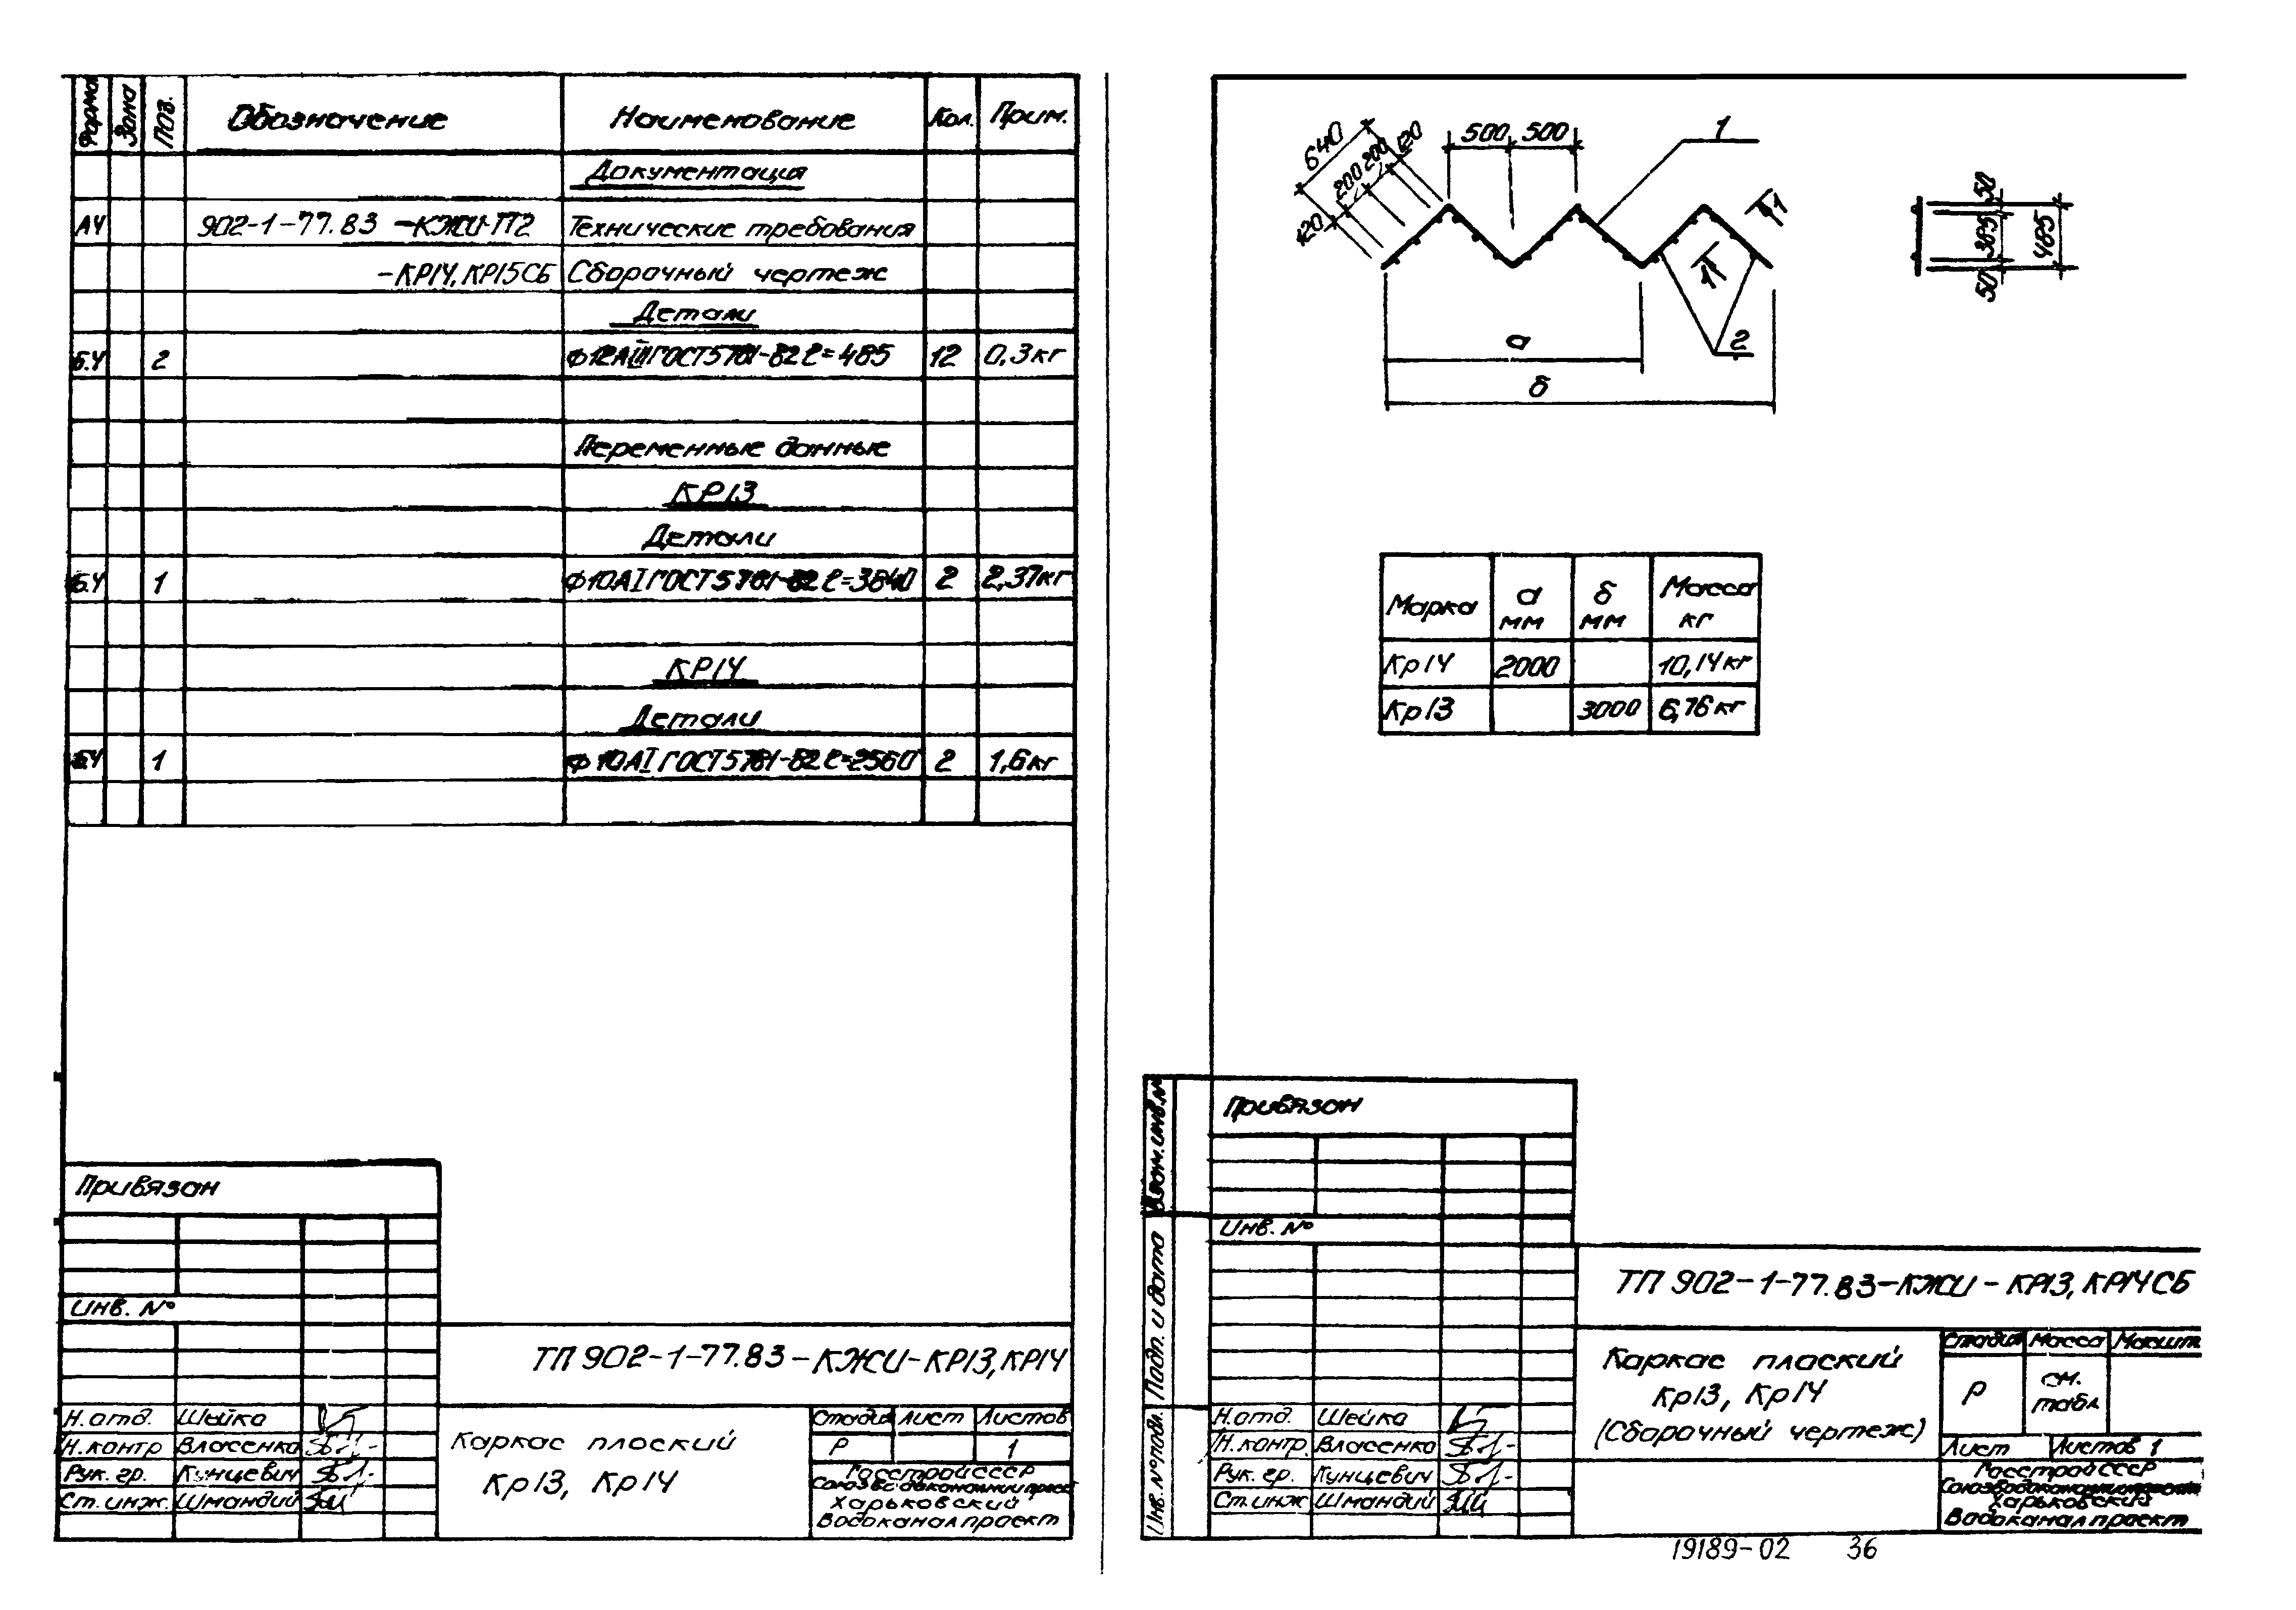 Форма Зона Поз. Обозначение Наименование Кол. Прим.
Документация
А4 902-1-77.83 -КЖИ-ТТ2 Технические требования
-КР14, КР15СБ Сборочный чертеж
Детали
Б.Ч 2 Ф12АIII ГОСТ5781-82 ℓ=485 12 0,3кг
Переменные данные
КР13
Детали
Б.Ч 1 Ф10АI ГОСТ5781-82 ℓ=3840 2 2,37кг
КР14
Детали
Б.Ч 1 Ф10АI ГОСТ5781-82 ℓ=2560 2 1,6кг
Привязан
Инв. №
ТП 902-1-77.83-КЖИ-КР13, КР14
Н.отд. Шейко
Н.контр Власенко
Рук. гр. Кунцевич
Ст. инж. Шмандий
Каркас плоский
Кр13, Кр14
Стадия Лист Листов
Р 1
Госстрой СССР
Харьковский
Водоканалпроект
640
120 200 200 120
500 500
1
1 1
2
а
б
50
385
50
485
Марка а мм б мм Масса кг
Кр14 2000 10,14кг
Кр13 3000 6,76кг
Взам. инв. №
Подп. и дата
Инв. № подл.
Привязан
Инв. №
ТП 902-1-77.83-КЖИ-КР13, КР14СБ
Н.отд. Шейко
Н.контр. Власенко
Рук. гр. Кунцевич
Ст.инж Шмандий
Каркас плоский
Кр13, Кр14
(Сборочный чертеж)
Стадия Масса Масшт
Р см. табл
Лист Листов 1
Госстрой СССР
Харьковский
Водоканалпроект
19189-02 36